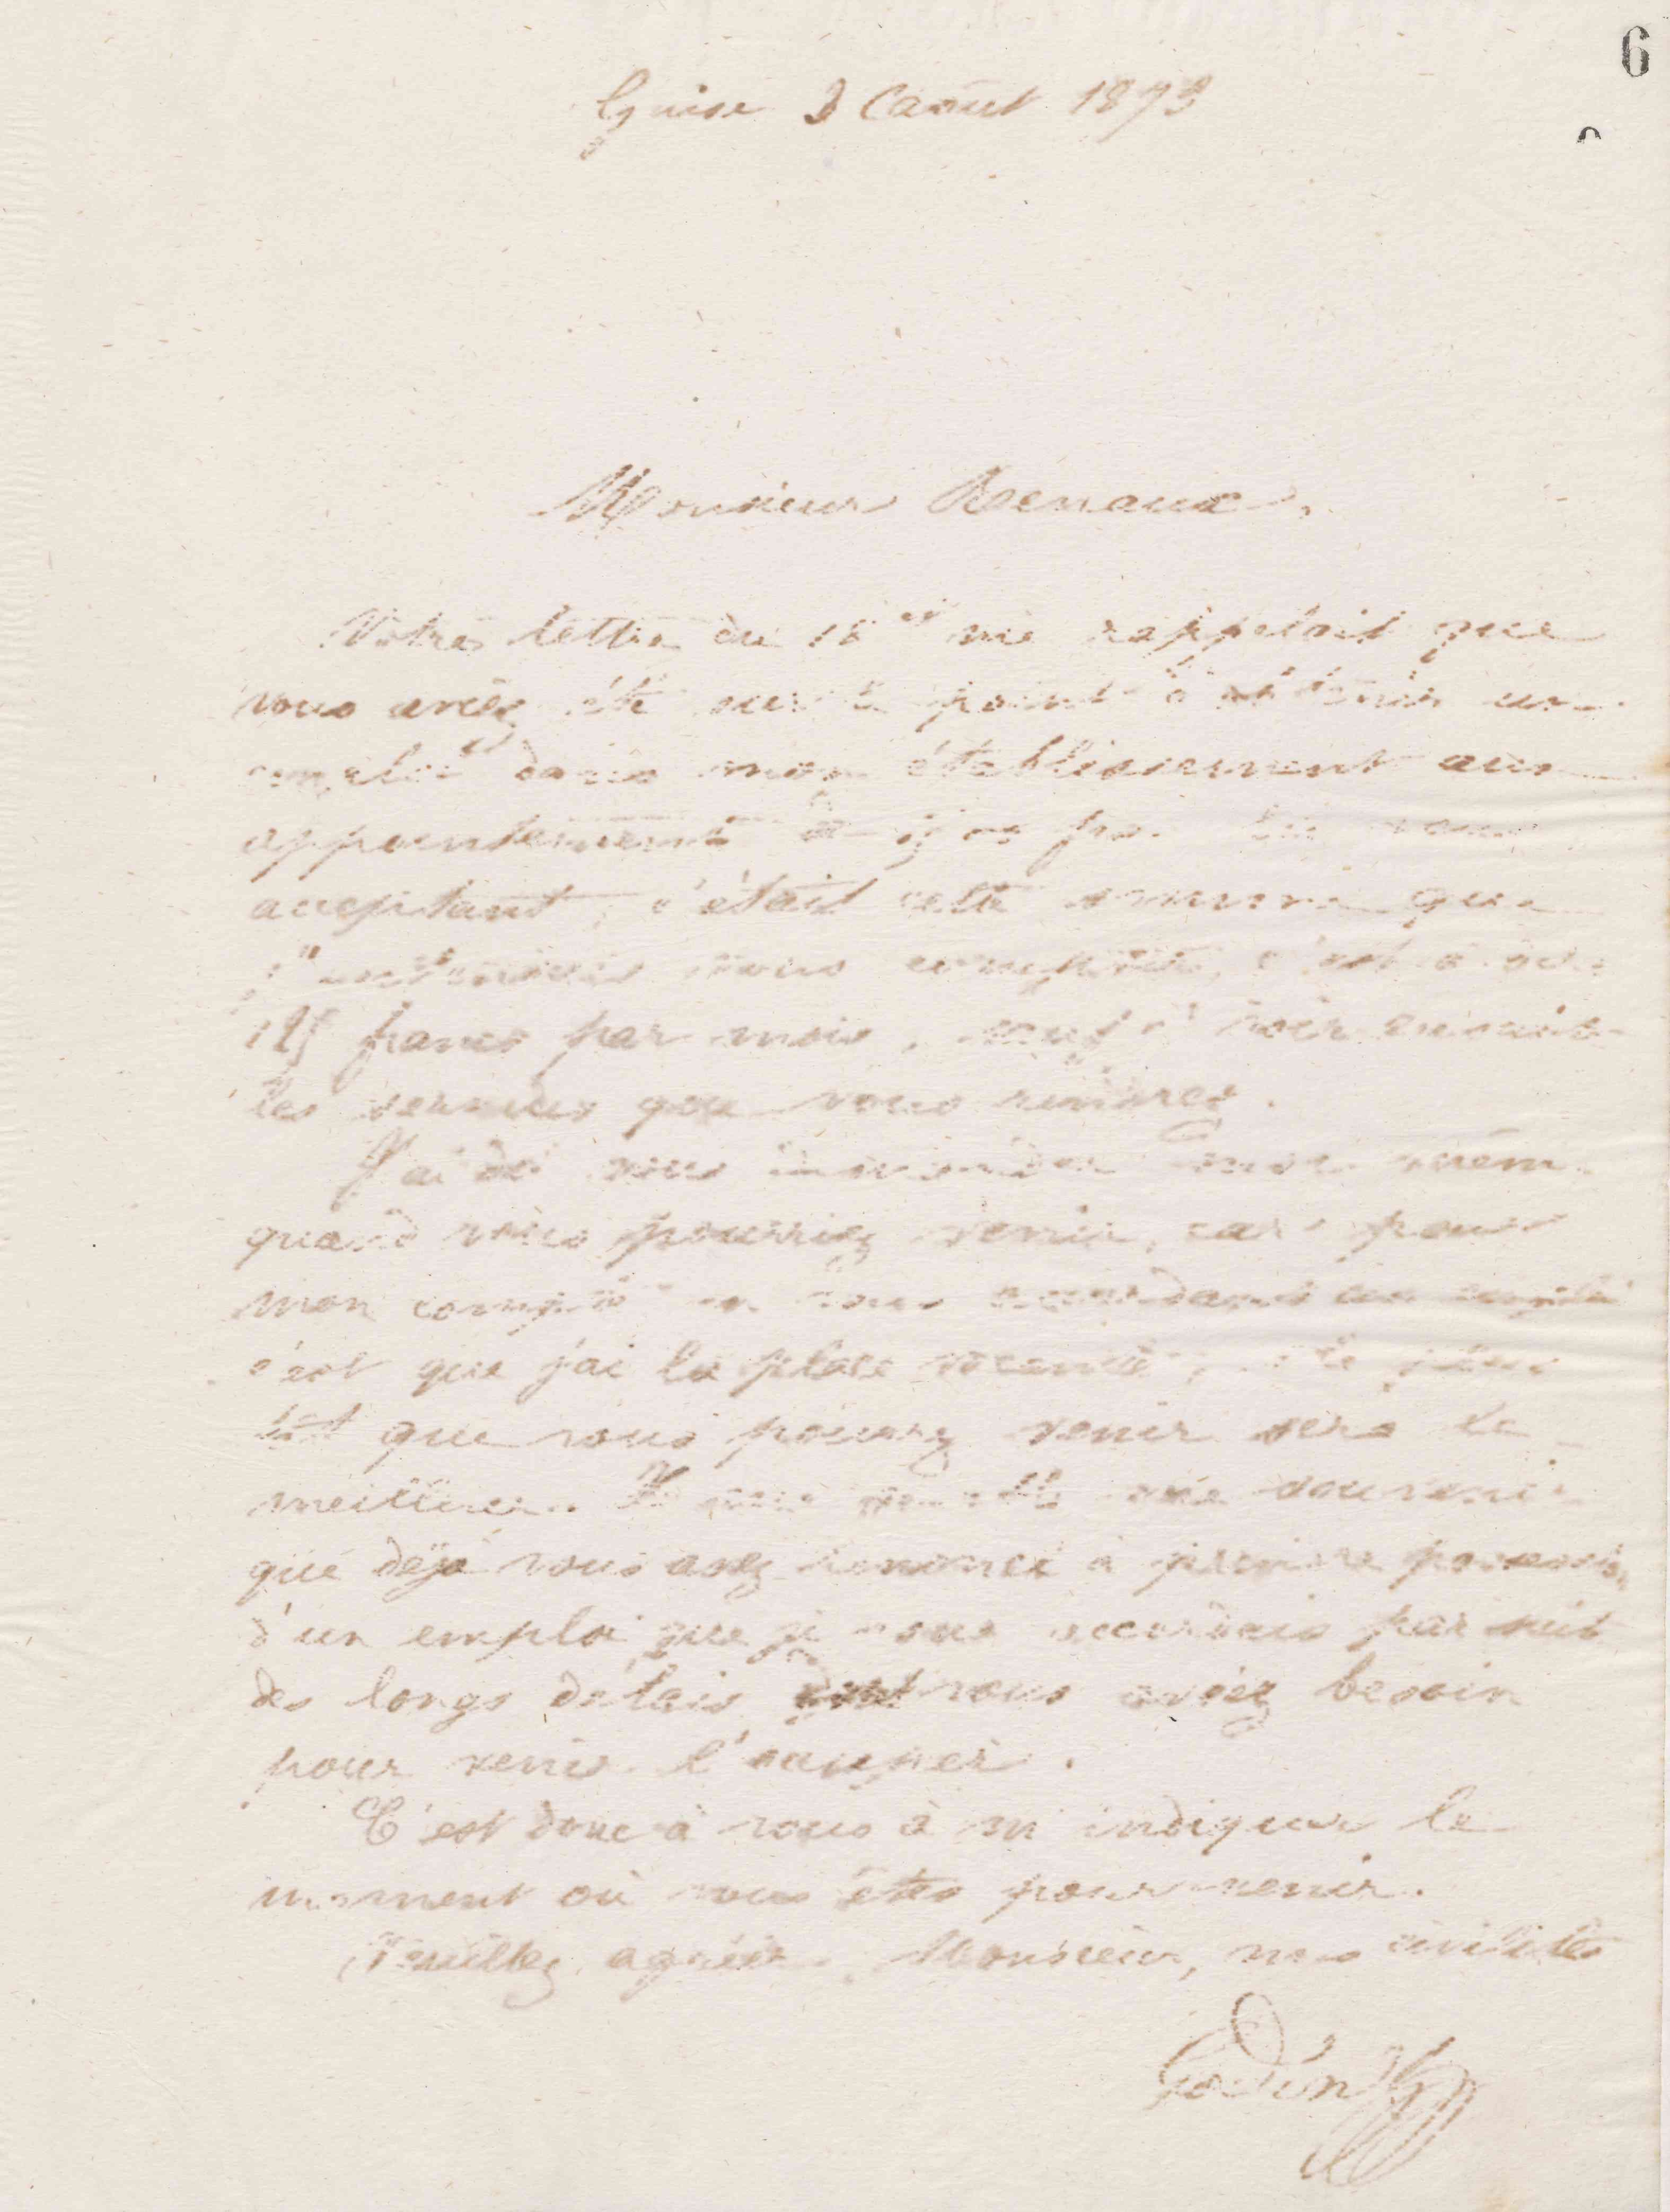 6
Guise 3 Caout 1873
Monsieur Renaux,
Votre lettre du 18 me rappelait que
vous aviez été sur le point d'obtenir un
emploi dans mon établissement aux
appointements de frs. En vous
acceptant, c'était cette somme que
j'entendais vous compter, c'est à dire
125 francs par mois, sauf à voir ensuite
les services que vous rendrez.
J'ai dû vous demander moi même
quand vous pourriez venir, car pour
mon compte en vous accordant un emploi
c'est que j'ai la place vacante, le plus
tôt que vous pourrez venir sera le
meilleur. Il me souvenir
que déjà vous avez renoncé à prendre possession
d'un emploi que je vous accordais par suite
des longs délais dont vous aviez besoin
pour venir l'occuper.
C'est donc à vous à m'indiquer le
moment où vous êtes pour venir.
Veuillez agréer, Monsieur, mes civilités
Godin